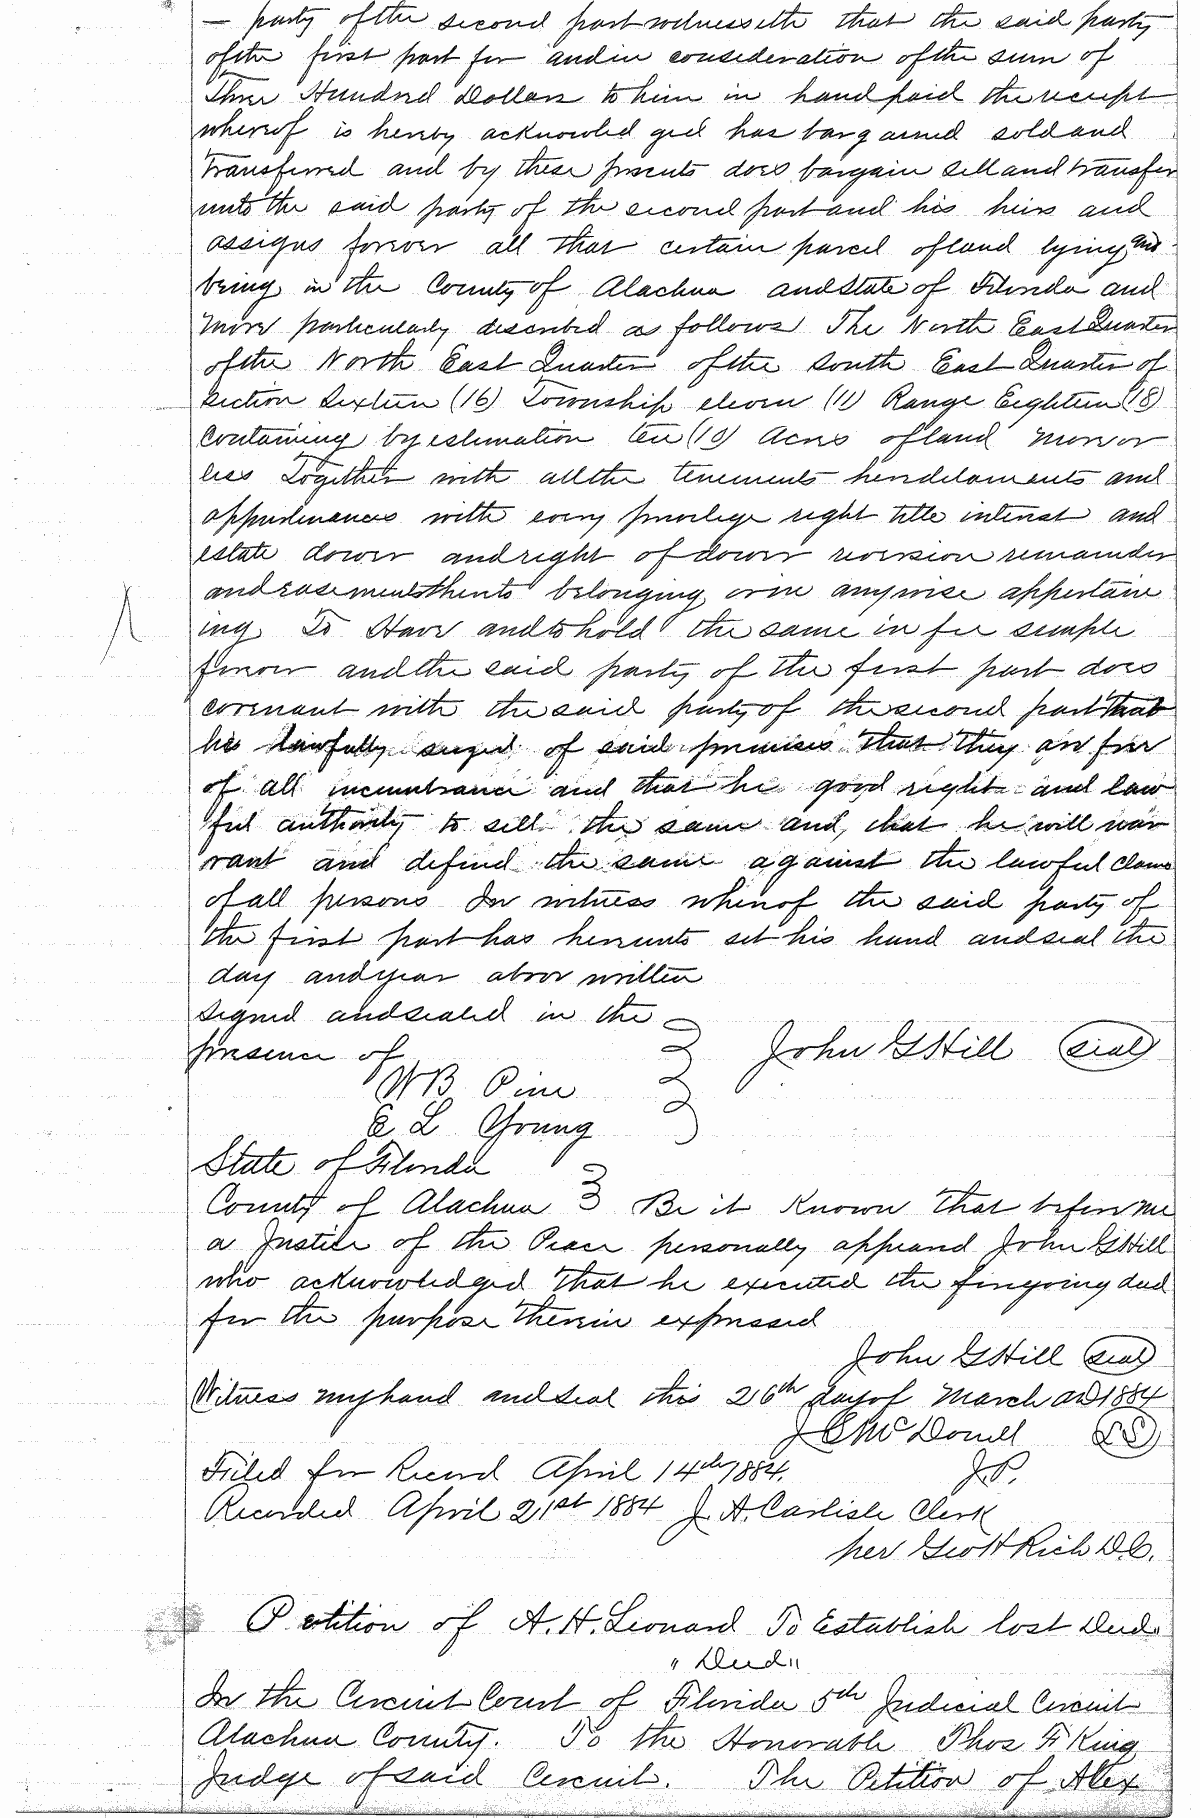 — party of the second part witnesseth that the said party
of the first part for and in consideration of the sum of
Three Hundred Dollars to him in hand paid the receipt
whereof is hereby acknowledged has bargained sold and
transferred and by these presents does bargain sell and transfer
unto the said party of the second part and his heirs and
assigns forever all that certain parcel of land lying and
being in the County of Alachua and State of Florida and
more particularly described as follows The North East Quarter
of the North East Quarter of the South East Quarter of
Section Sixteen (16) Township eleven (11) Range Eighteen (18)
Containing by estimation ten (10) Acres of land more or
less Together with all the tenements herediaments and
appurtenances with every privilege right title interest and
estate dower and right of dower reversion remainder
and easements thereto belonging or in anywise appertain
ing To Have and to hold the same in fee simple
forever and the said party of the first part does
covenant with the said party of the second part that
he lawfully seized of said premises that they are free
of all incumbrance and that he good right and law
ful authority to sell the same and, that he will war
rant and defend the same against the lawful claims
of all persons In witness whereof the said party of
the first part has hereunto set his hand and seal the
day and year above written
Signed and sealed in the
presence of John G Hill (seal)
W B Pine
E L Young
State of Florida
County of Alachua } Be it Known that before me
a Justice of the Peace personally appeared John G Hill
who acknowledged that he executed the foregoing deed
for the purpose therein expressed
John G Hill (seal)
Witness my hand and seal this 26th day of March AD 1884
J C McDonell (LS)
Filed for Record April 14th 1884. J.P.
Recorded April 21st 1884 J. A. Carlisle Clerk
per Geo H Rich D.C.
Petition of A. H. Leonard To Establish lost Deed.
" Deed "
In the Circuit Court of Florida 5th Judicial Circuit
Alachua County. To the Honorable Thos F King
Judge of said Circuit. The Petition of Alex